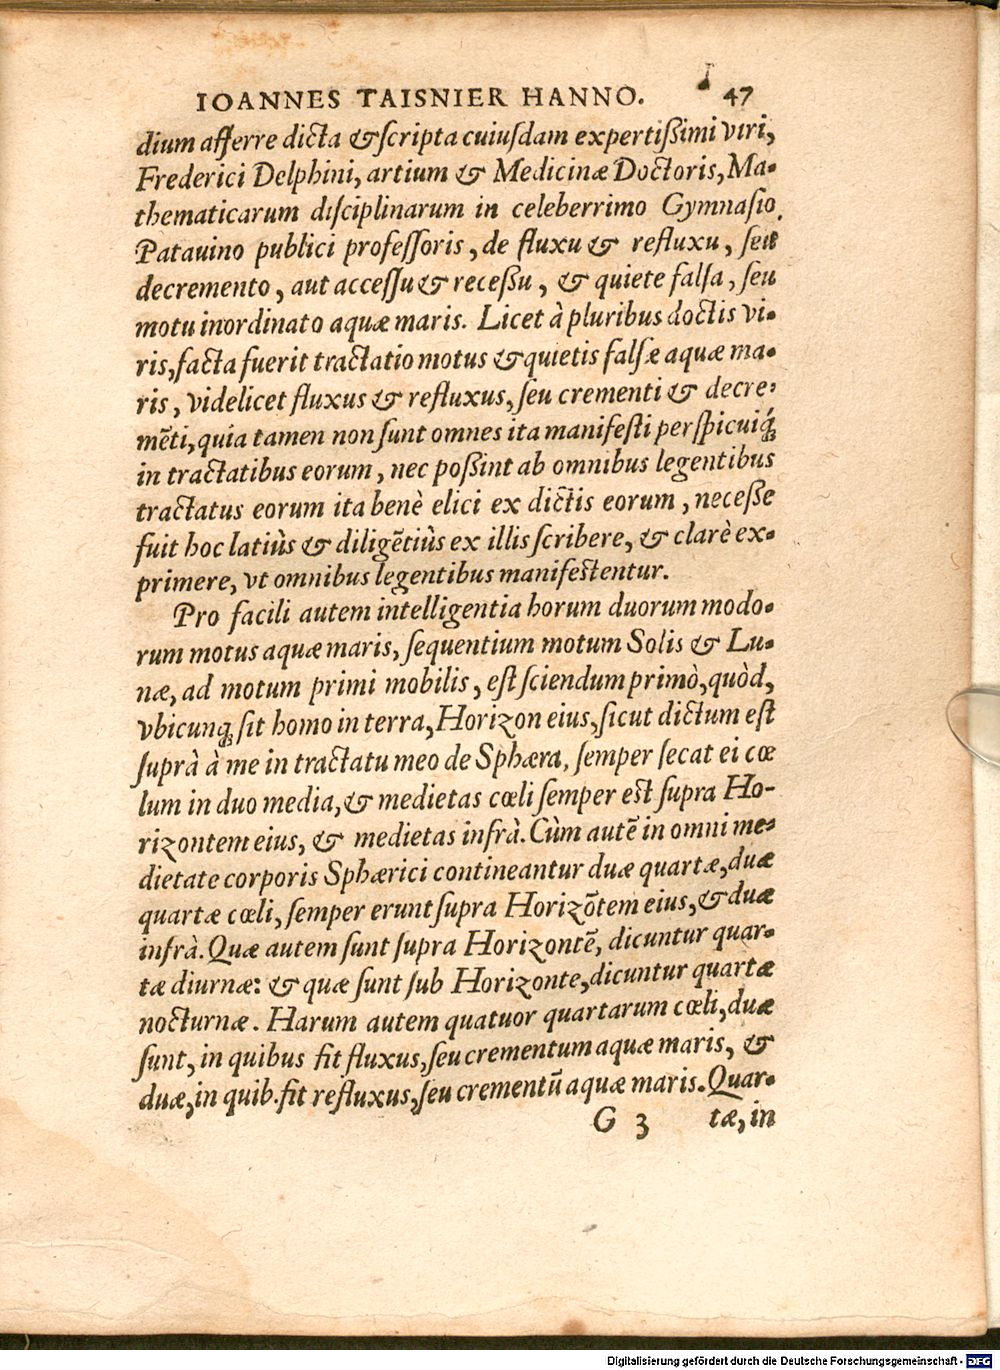 IOANNES TAISNIER HANNO. 47
dium afferre dicta & ſcripta cuiuſdam expertißimi viri,
Frederici Delphini, artium & Medicinæ Doctoris, Ma-
thematicarum diſciplinarum in celeberrimo Gymnaſio
Patauino publici profeſſoris, de fluxu & refluxu, ſeu
decremento, aut acceſſu & receßu, & quiete falſa, ſeu
motu inordinato aquæ maris. Licet à pluribus doctis vi-
ris, facta fuerit tractatio motus & quietis falſæ aquæ ma-
ris, videlicet fluxus & refluxus, ſeu crementi & decre-
mēti, quia tamen non ſunt omnes ita manifeſti perſpicuiq́;
in tractatibus eorum, nec poßint ab omnibus legentibus
tractatus eorum ita benè elici ex dictis eorum, neceße
fuit hoc latiùs & diligētiùs ex illis ſcribere, & clarè ex-
primere, vt omnibus legentibus manifeſtentur.
Pro facili autem intelligentia horum duorum modo-
rum motus aquæ maris, ſequentium motum Solis & Lu-
næ, ad motum primi mobilis, eſt ſciendum primò, quòd,
vbicunq; ſit homo in terra, Horizon eius, ſicut dictum eſt
ſuprà à me in tractatu meo de Sphæra, ſemper ſecat ei cœ
lum in duo media, & medietas cœli ſemper eſt ſupra Ho-
rizontem eius, & medietas infrà. Cùm autē in omni me-
dietate corporis Sphærici contineantur duæ quartæ, duæ
quartæ cœli, ſemper erunt ſupra Horizōtem eius, & duæ
infrà. Quæ autem ſunt ſupra Horizontē, dicuntur quar-
tæ diurnæ: & quæ ſunt ſub Horizonte, dicuntur quartæ
nocturnæ. Harum autem quatuor quartarum cœli, duæ
ſunt, in quibus fit fluxus, ſeu crementum aquæ maris, &
duæ, in quib. fit refluxus, ſeu crementū aquæ maris. Quar-
G 3 tæ, in
Digitalisierung gefördert durch die Deutsche Forschungsgemeinschaft - DFG